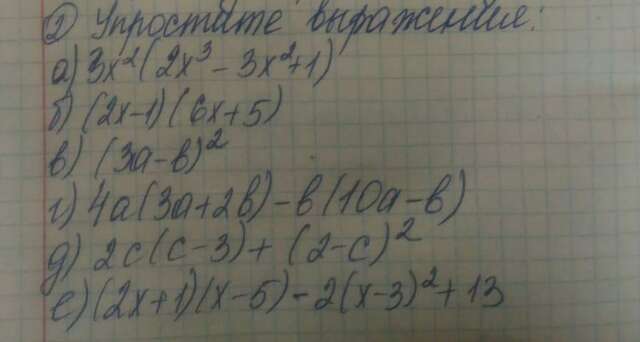 ② Упростите выражения:
а) 3x²(2x³ - 3x²+1)
б) (2x-1)(6x+5)
в) (3a-b)²
г) 4a(3a+2b)-b(10a-b)
д) 2c(c-3)+(2-c)²
е) (2x+1)(x-5)-2(x-3)²+13